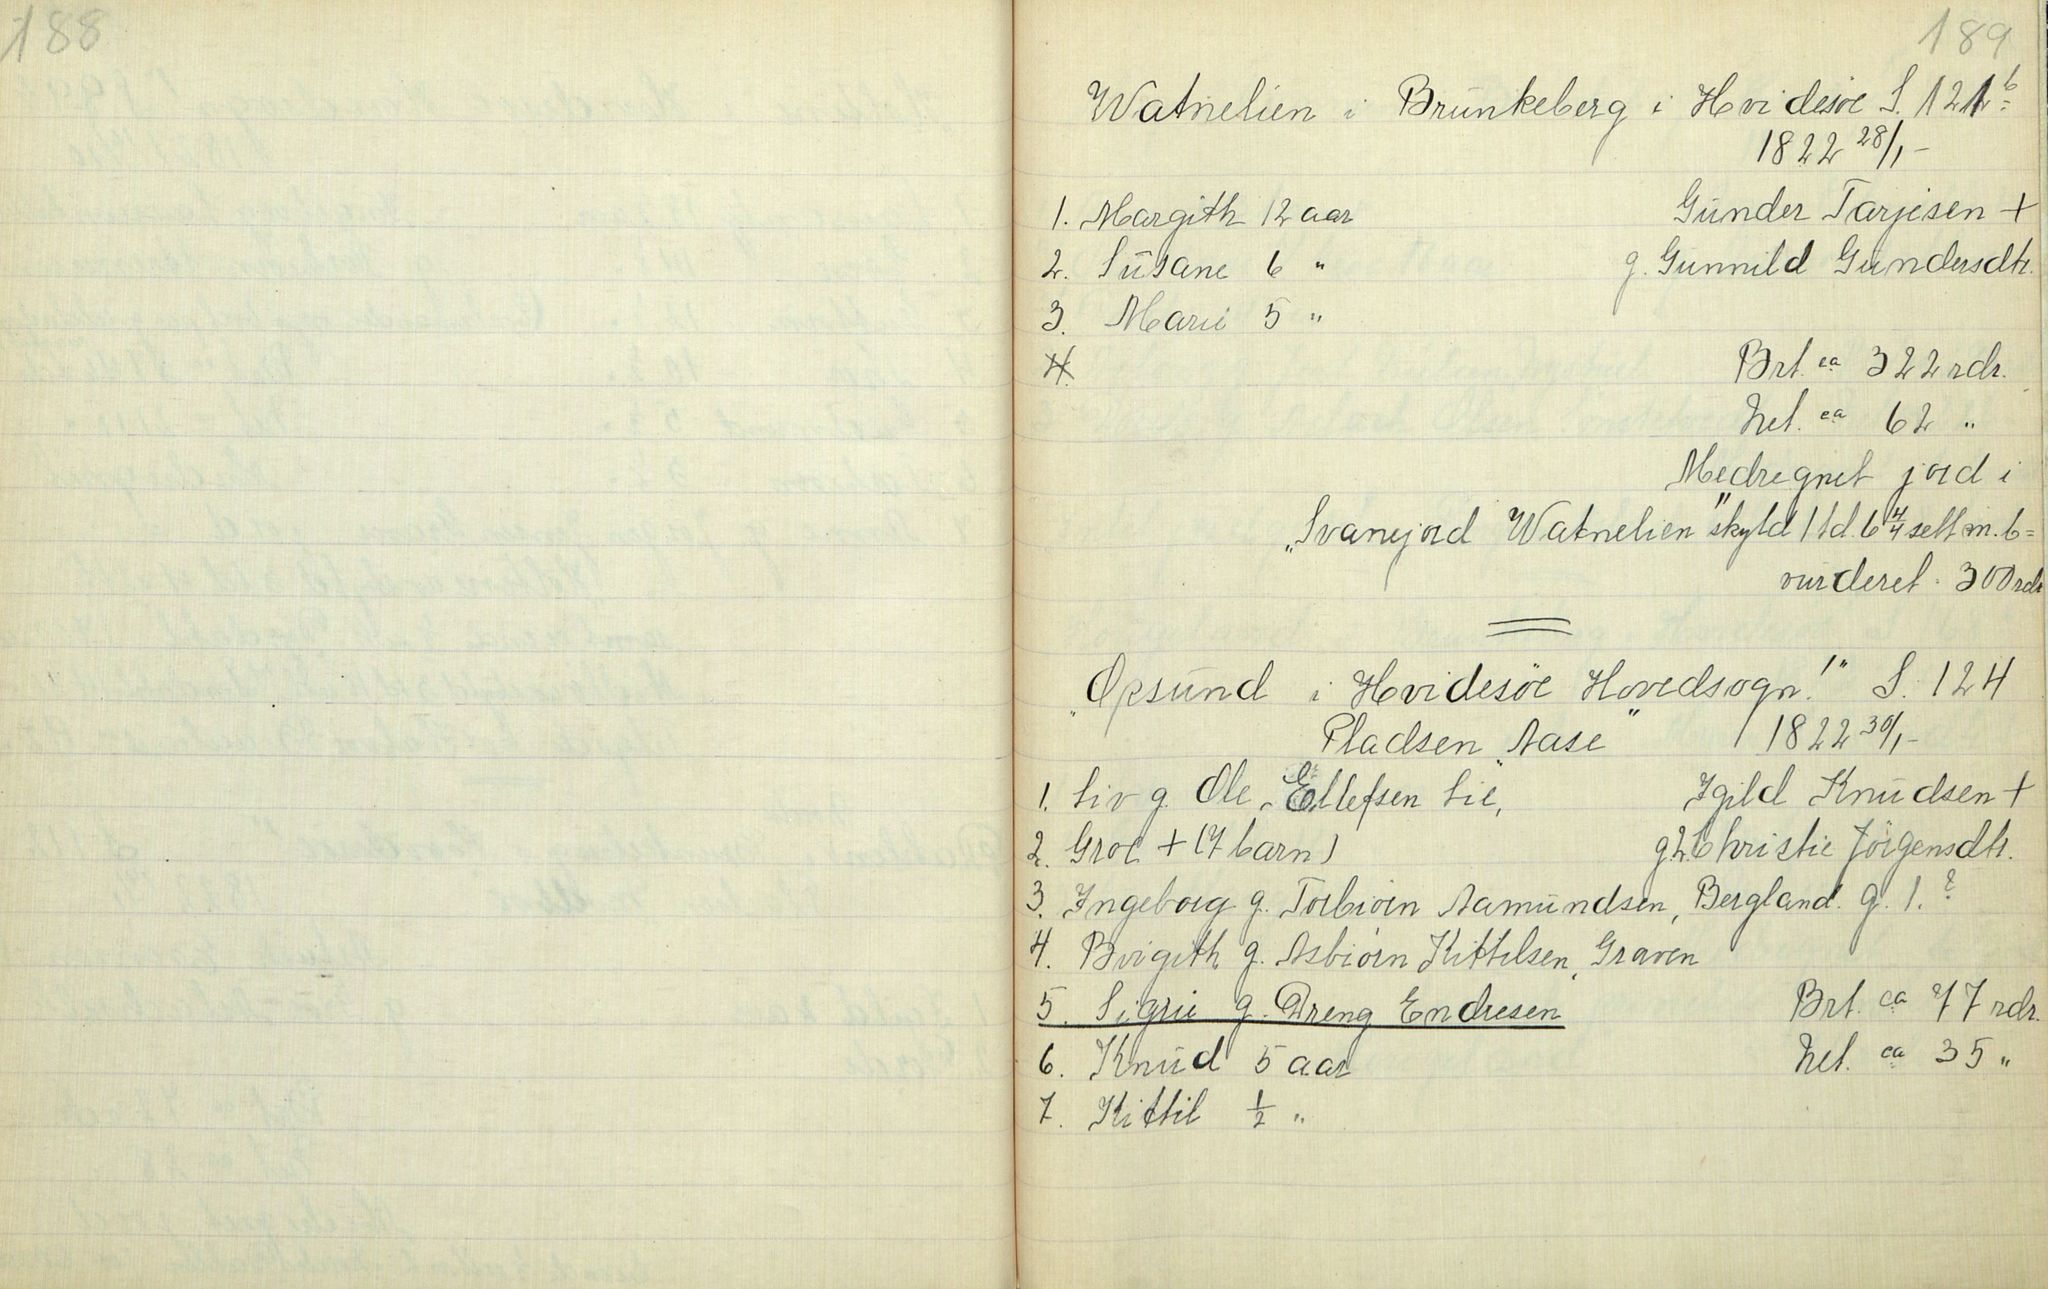 188
189
Watnelien i Brunkeberg i Hvidesöe S. 121 b=
1822 28/1-
1. Margith 12 aar Gunder Tarjesen +
2. Susane 6 " g. Gunnild Gundersdtr.
3. Marie 5 "
4. Brt. ca 322 rdr.
Net. ca 62 "
Medregnet jord i
"Svanejord Watnelien" skyld 1 td. 6 4/4 sett m. b=
vurderet 300 rdr
"Opsund i Hvidesöe Hovedsogn!" S. 124
Pladsen "Aase" 1822 30/1-
1. Liv g. Ole Ellefsen Lie, Igild Knudsen +
2. Groe + (7 barn) g.2. Christie Jörgensdtr.
3. Ingeborg g. Torbiörn Aamundsen, Bergland. g. 1. ?
4. Birgith g. Asbiörn Kittilsen, Graven
5. Sigrie g. Dreng Endresen Brt. ca 77 rdr.
6. Knud 5 aar Net. ca 35 "
7. Kittil 1/2 "